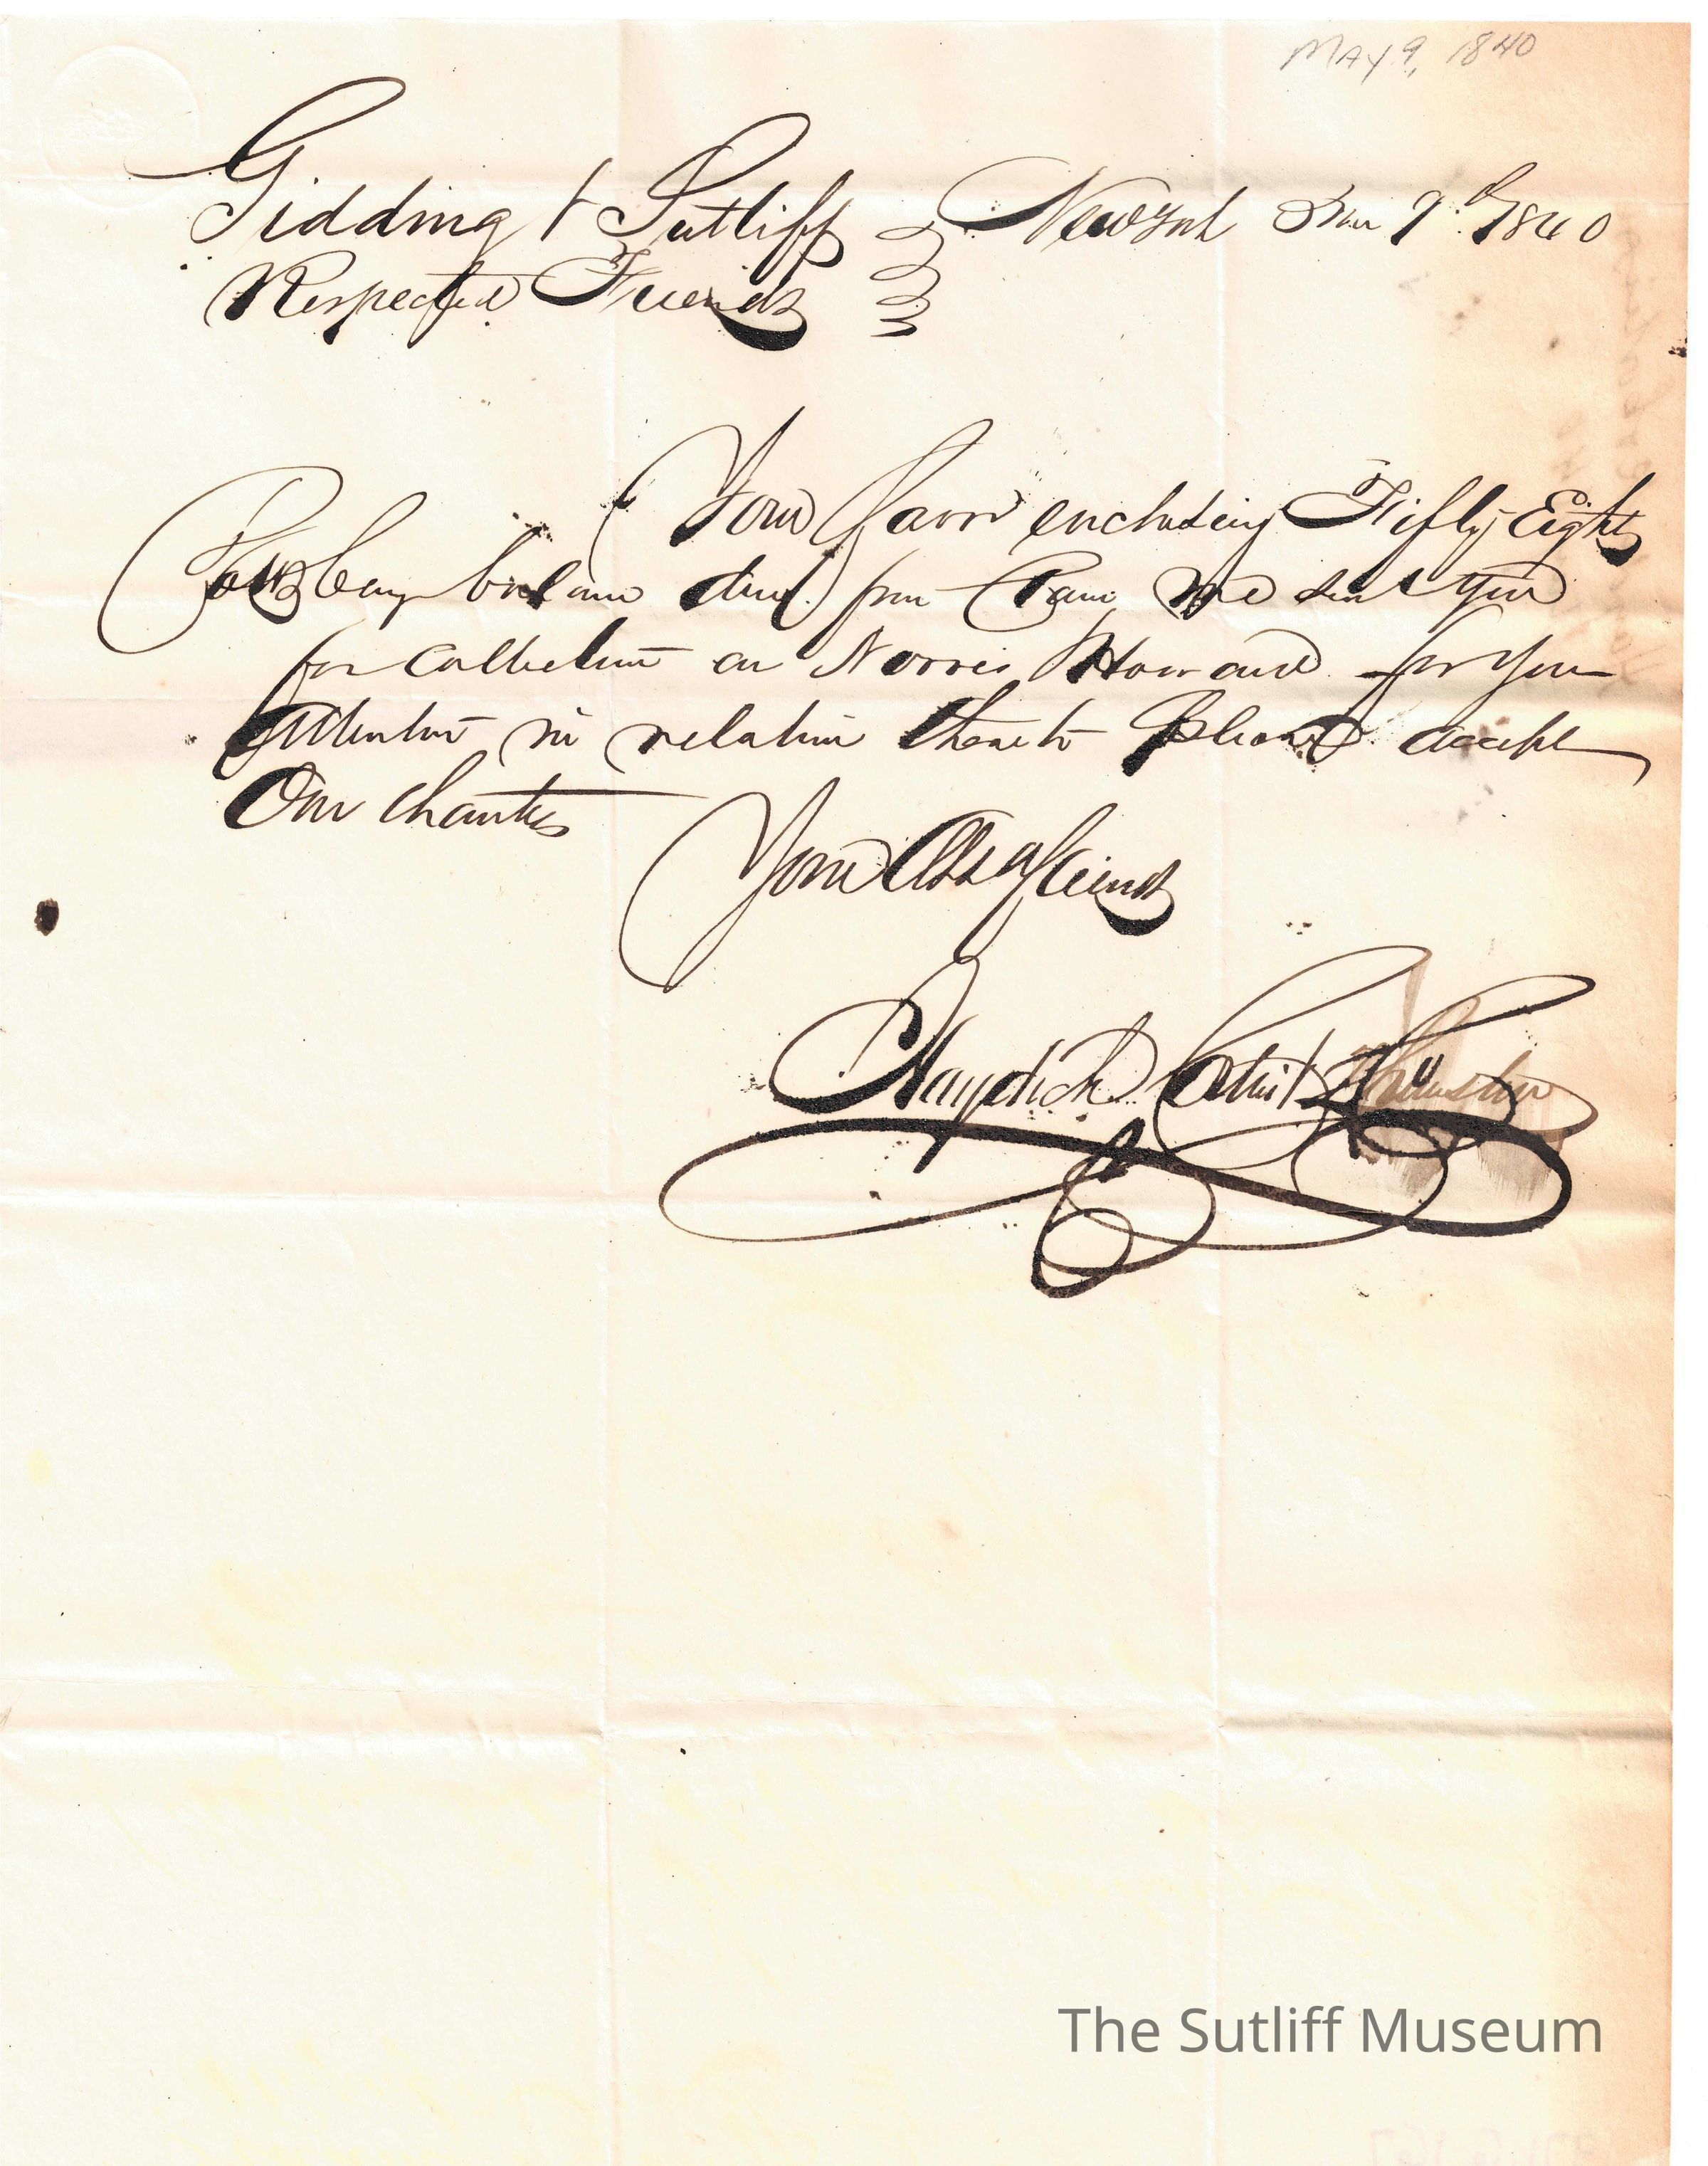 May 9, 1840
Gidding & Sutliff New York 9th 1840
Respected Friends
Your favor enclosing Fifty Eight
balance due from we sent you
for collection on Norris Howard for your
attention in relation thereto please accept
Our thanks
Your Friends
Haydock
The Sutliff Museum